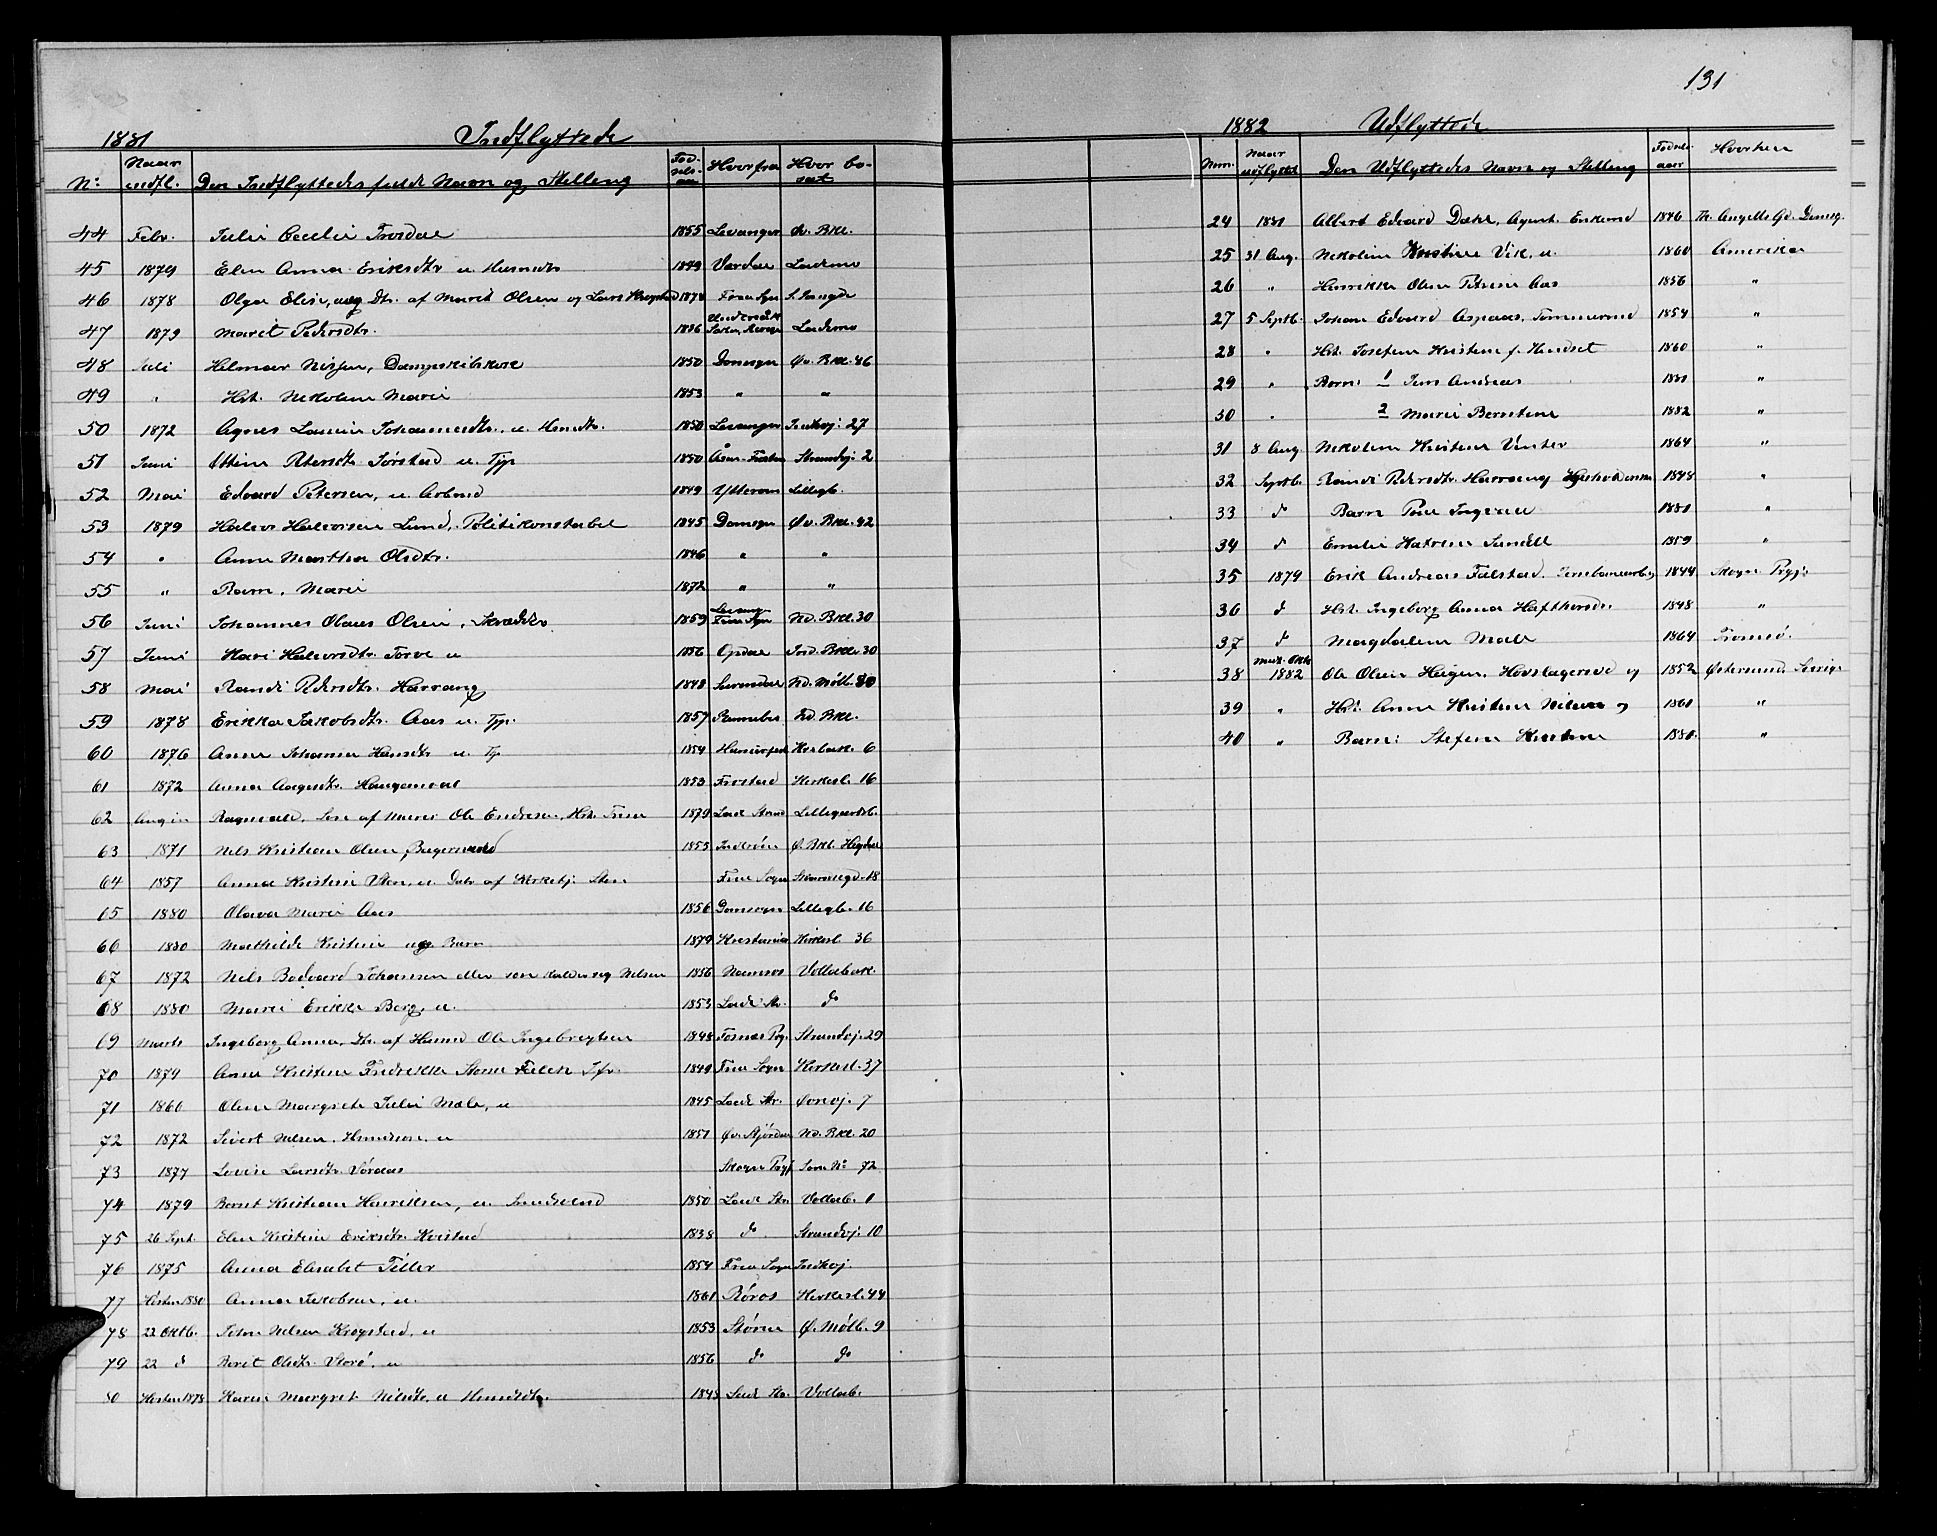 131
1881 Indflyttede
No Naar indfl. Den Indflyttedes fulde Navn og Stilling Fødselsaar Hvorfra Hvor bosat
44 Febr. Julie Cecilie Frosdal 1855 Levanger Øv. Bkl.
45 1879 Elen Anna Eriksdtr u Husmdtr 1849 Værdal Lademo
46 1878 Olga Elise, uæg Dtr. af Marit Olsen og Lars Krogstad 1878 Frue Sgn
47 1879 Marit Pedersdtr. 1836 Lademo
48 Juli Hilmar Nissen, Dampskibskok 1850 Domsogn Øv. Bkl. 46
49 " Hst. Nikoline Marie 1853 " "
50 1872 Agnes Laurine Johannesdtr. u. Hsmdtr. 1850 Levanger Indhvj. 27
51 Juni Ottine Petersdtr Sørstad u. Tjp 1850 Aasen Strandvj. 2
52 Mai Edvard Petersen, u Arbmd 1849 Ytterøen Lillegb.
53 1879 Halvor Halvorsen Lund, Politikonstabel 1845 Domsgn Øv. Bkl. 42
54 " Anne Martha Olsdtr. 1846 " "
55 " Barn, Marie 1872 " "
56 Juni Johannes Olaus Olsen, Skrædder 1859 Levanger Frue Sgn Nd. Bkl. 30
57 Juni Kari Halvorsdtr. Torve u 1856 Opdal Ind. Bkl. 30
58 Mai Randi Pedersdtr. Harvang 1848 Surendal Nd. Møllb. 80
59 1878 Erikka Jakobsdtr. Aas u. Tjp. 1857 Nd. Bkl.
60 1876 Anne Johanna Hansdtr u. Tp 1854 6
61 1872 Anna Aagesdtr. Haugamoal 1853 Frostad Kirkesl. 16
62 Ragnvald, Søn af Murer Ole Endresen, Hst. Trine 1879 Lade Strand Lillegaardsb.
63 1871 Nils Kristian Olsen, Bagersvend 1855 Inderøen Ø. Bkl.
64 1857 Anna Kristine Sten, u. Datr af Kirketj. Sten Frue Sogn 18
65 1880 Olava Marie Aas 1856 Domsogn Lillegb. 16
66 1880 Mathilde Kristine uæg Barn 1879 Kristiania Kirkesl 36
67 1872 Nils Bodvard Johansen eller som kalder sig Nilsen 1856 Namsos Vollabak.
68 1880 Marie Erikke Berg, u. 1853 Lade Str. do
69 Marts Ingeborg Anna, Dtr. af Husmd Ole Ingebregtsen 1848 Fosnes Prg. Strandvj. 29
70 1879 Anne Kristine Fredrikke Storm Falck Jfr. 1849 Frue Sogn Kirkesl. 37
71 1860 Oline Margrete Julie Male, u 1845 Lade Str. Øvrevj. 7
72 1872 Sivert Nilsen, Hmdsøn, u 1851 Øv. Stjørdal Nd. Bkl. 20
73 1877 Lovise Larsdtr Vordaas Skogn Prgj Som No 72
74 1879 Bernt Kristian Henriksen, u Smedsvend 1850 Lade Str. Vollab. 1
75 26 Sept. Elen Kristine Eriksdtr. Kvistad 1838 do. Strandvj. 10
76 1875 Anna Elisabet Tiller 1854 Frue Sogn Indhvj.
77 Høsten 1880 Anna Jakobsen, u. 1861 Røros Kirkesl. 44
78 22 Oktb. John Nilsen Krogstad, u 1853 Støren Ø. Møllb. 9
79 22 d Berit Olsdtr. Storø, u 1856 do do
80 Høsten 1878 Karen Margret Nilsdtr, u Hmdsdtr. 1848 Lade Str. Vollab.
1882 Udflyttede
Num. Naar udflyttet Den Udflyttedes Navn og Stilling Fødselsaar Hvorhen
24 1881 Albert Edvard Dahl, Agent. Enkemd 1846 Th. Angells Gd. Domsg.
25 31 Aug. Nikoline Kristine Vik, u. 1860 Amerika
26 " Henrikke Oline Petrine Aas 1856 "
27 5 Septb. Johan Edvard Aspaas, Tømmermd 1854 "
28 " Hst. Josefine Kristine f. Hindset 1860 "
29 " Børn: 1 Jens Andreas 1880 "
30 " 2 Marie Berntine 1882 "
31 8 Aug. Nikoline Kristine Vinter 1864 "
32 Septb. Randi Pedersdtr. Harvang 1848 "
33 d Barn Peer Ingvald 1881 "
34 d Emilie Katrine Sundell 1859 "
35 1879 Erik Andreas Falstad, Jernbanearb. 1844 Skogn Prgj.
36 d Hst. Ingeborg Anna Hafthorsdr. 1848 "
37 d Magdalena Male 1864 Tromsø.
38 Midt. Oktb 1882 Ole Olsen Haugen, Hovslagersvd og 1852 Østersund, Sverige
39 " Hst. Anne Kristine Nilsen og 1860 "
40 " Barn: Stefine Kristine 1880. "